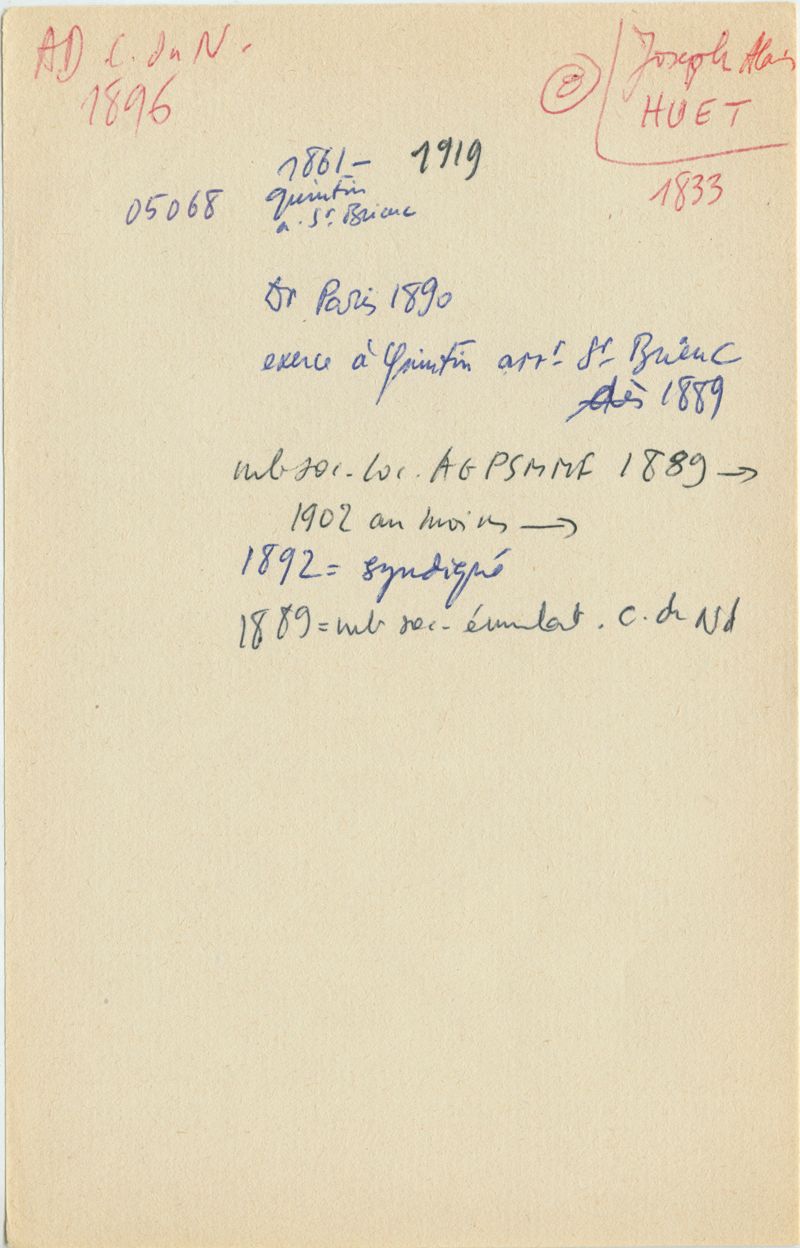 AD C. du N.
1896
Joseph Alain
HUET
1833
1861 - 1919
05068
Quintin
a. St Brieuc
Dr Paris 1890
exerce à Quintin arrt St Brieuc
dès 1889
mb soc. loc. AGPSMMF 1889 →
1902 au moins →
1892 = syndiqué
1889 = mb soc. émulat. C. du Nd